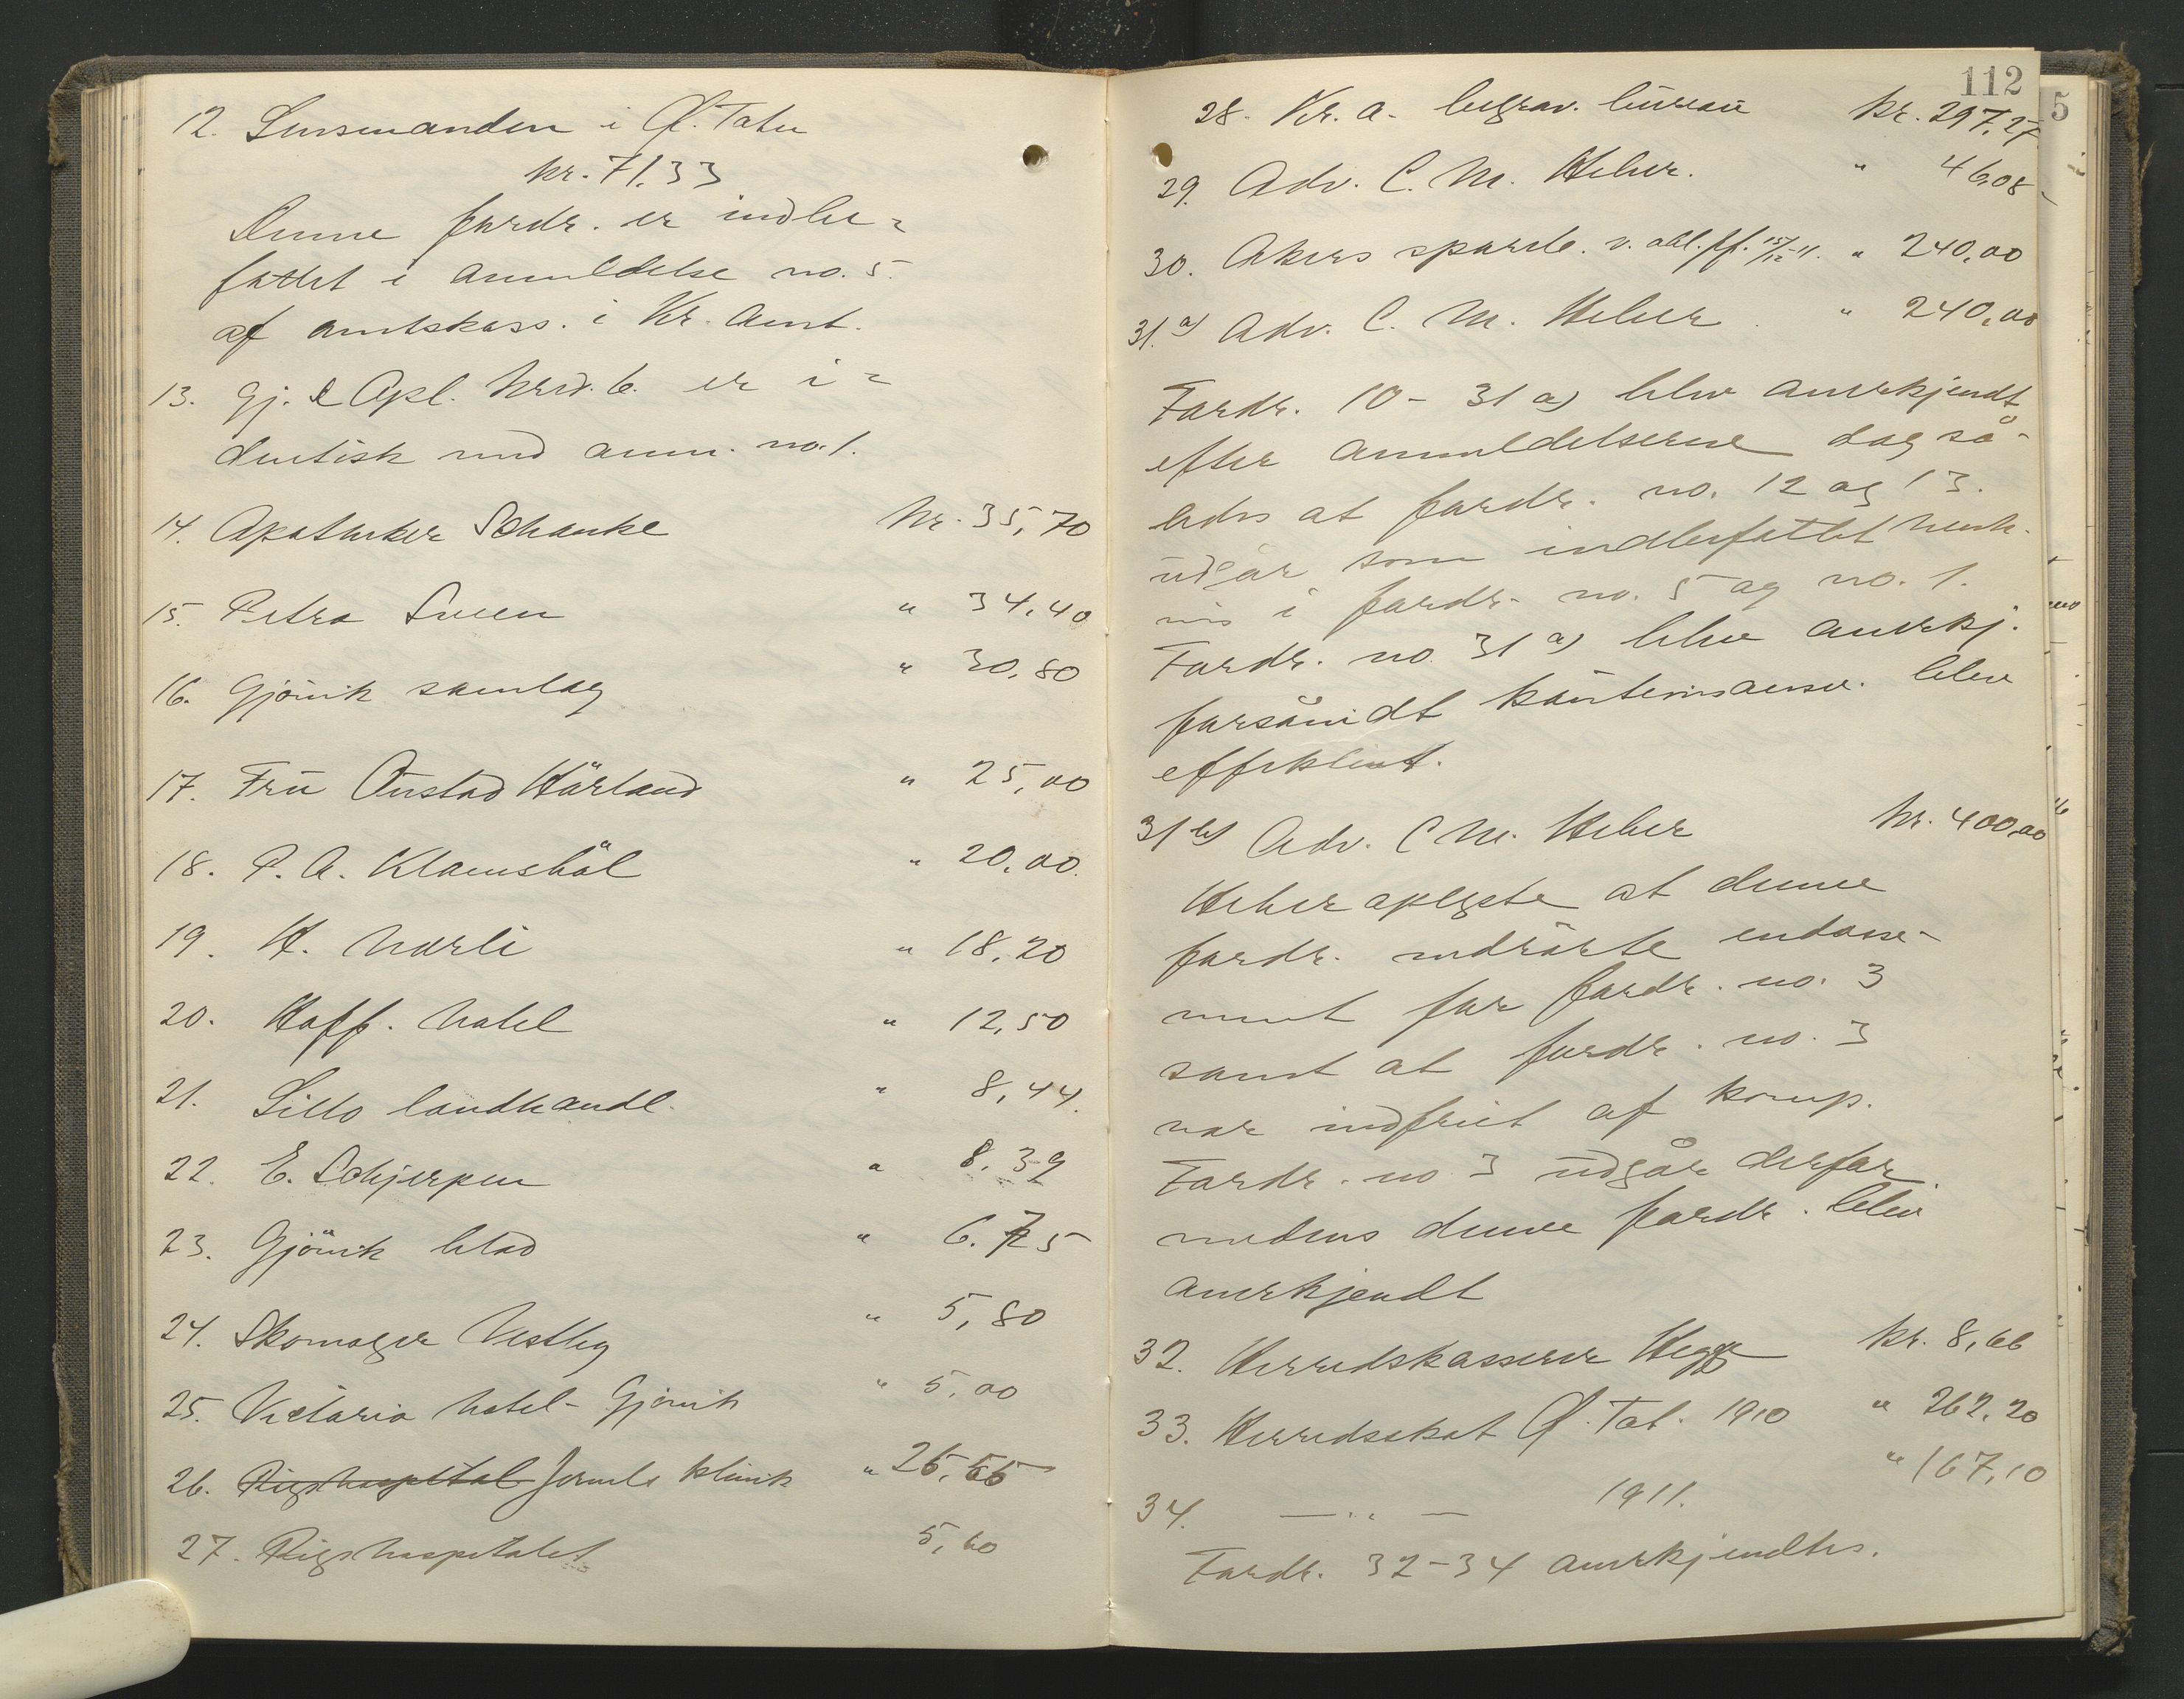 12. Lensmanden i Ø. Toten
kr. 71.33
Denne fordr. er indbe=
fattet i anmeldelse no. 5
af amtskass. i Kr. Amt.
13. Gj. & Opl. kred.b. er i=
dentisk med anm. no. 1.
14. Apotheker Schanke kr. 35,70
15. Petra Sveen " 34,40
16. Gjövik samlag " 30,80
17. Fru Onstad Hårland " 25,00
18. P. A. Klaushål " 20,00.
19. H. Narli " 18,20
20. Hoff. hotel " 12,50
21. Lillo landhandl. " 8,44.
22. E. Schjerpen " 8.39
23. Gjövik blad " 6.75
24. Skomager Vestby " 5,80
25. Victoria hotel - Gjövik " 5,00
26. Rigshospital klinik "
27. Rigshospitalet 5,60
112
5
28. Kr.a. begrav. büreau kr. 297,27
29. Adv. C. M. Heber. " 46,08
30. Akers spareb. v. obl. pf. 15/12-11. " 240,00
31.a) Adv. C. M. Heber. " 240,00
Fordr. 10 - 31 a) blev anerkjendt
efter anmeldelserne dog så-
ledes at fordr. no. 12 og 13.
udgår som indbefattet henh.
vis i fordr. no. 5 og no. 1.
Fordr. no. 31 a) blev anerkj.
forsåvidt kautionsansv. blev
effektivt.
31 b) Adv. C M. Heber kr. 400,00
Heber oplyste at denne
fordr. vedrörte endosse-
ment for fordr. no. 3
samt at fordr. no. 3
var indfriet af komp.
Fordr. no 3 udgår derfor
medens denne fordr. blev
anerkjendt
32. Herredskasserer Hegge kr. 8,66
33. Herredsskat Ø. Tot. 1910 " 262,20
34. — " — 1911. " 167,10
Fordr. 32-34 anerkjendtes.